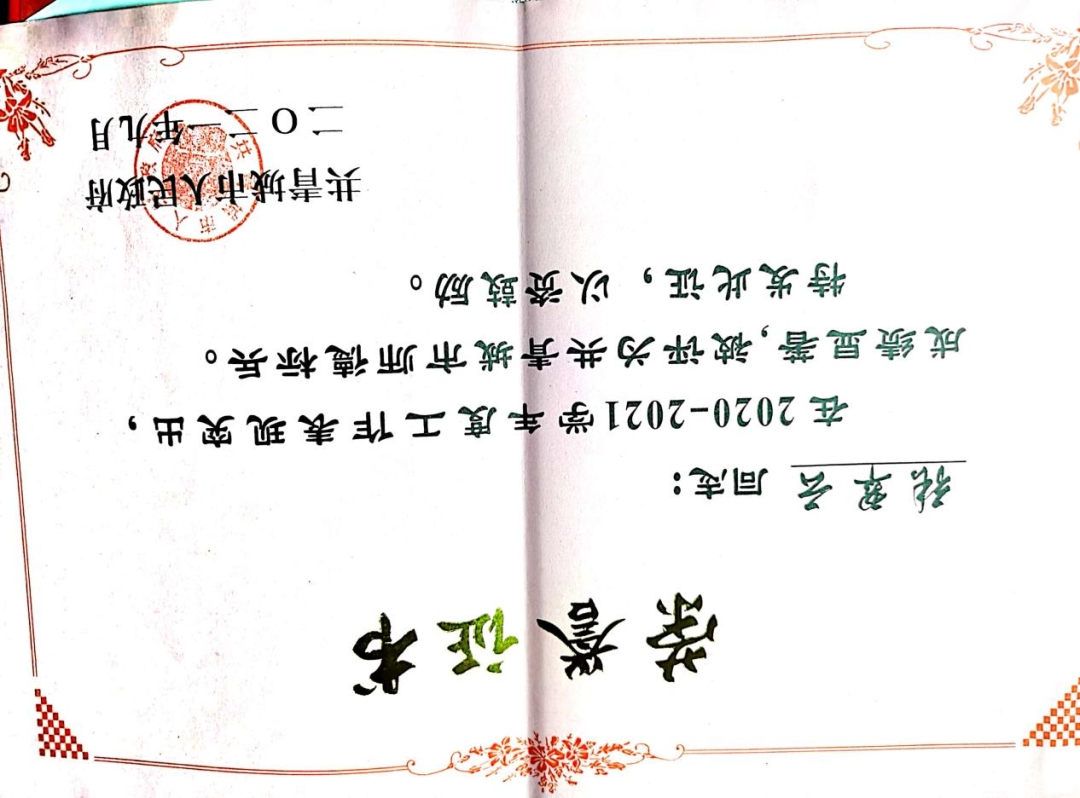 荣誉证书
张翠云 同志：
在2020-2021学年度工作表现突出，
成绩显著，被评为共青城市师德标兵。
特发此证，以资鼓励。
共青城市人民政府
二〇二一年九月